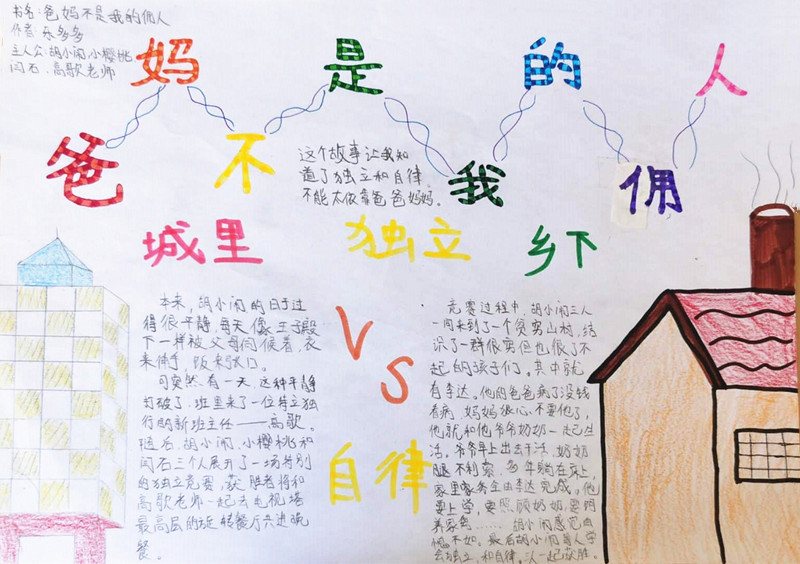 书名：爸妈不是我的佣人
作者：乐多多
主人公：胡小闹、小樱桃
闪石、高歌老师
爸妈不是我的佣人
这个故事让我知
道了独立和自律，
不能太依靠爸爸妈妈。
城里
独立
乡下
VS
自律
本来，胡小闹的日子过
得很平静，每天像王子殿
下一样被父母伺候着，衣
来伸手，饭来张口。
可突然有一天，这种平静
打破了，班里来了一位特立独
行的新班主任——高歌。
随后，胡小闹、小樱桃和
闪石三个人展开了一场特别
的独立竞赛，获胜者将和
高歌老师一起去电视塔
最高层的旋转餐厅共进晚
餐。
竞赛过程中，胡小闹三人
一同来到了一个贫穷山村，结
识了一群很穷但也很了不
起的孩子们。其中就
有李达。他的爸爸病了没钱
看病，妈妈狠心不要他了，
他就和他爷爷奶奶一起生
活，爷爷早上出去干活，奶奶
腿不利索，多年躺在床上，
家里家务全由李达完成。他
要上学，要照顾奶奶，要
养家……胡小闹感觉自
愧不如。最后胡小闹等人学
会独立，和自律。三人一起获胜。